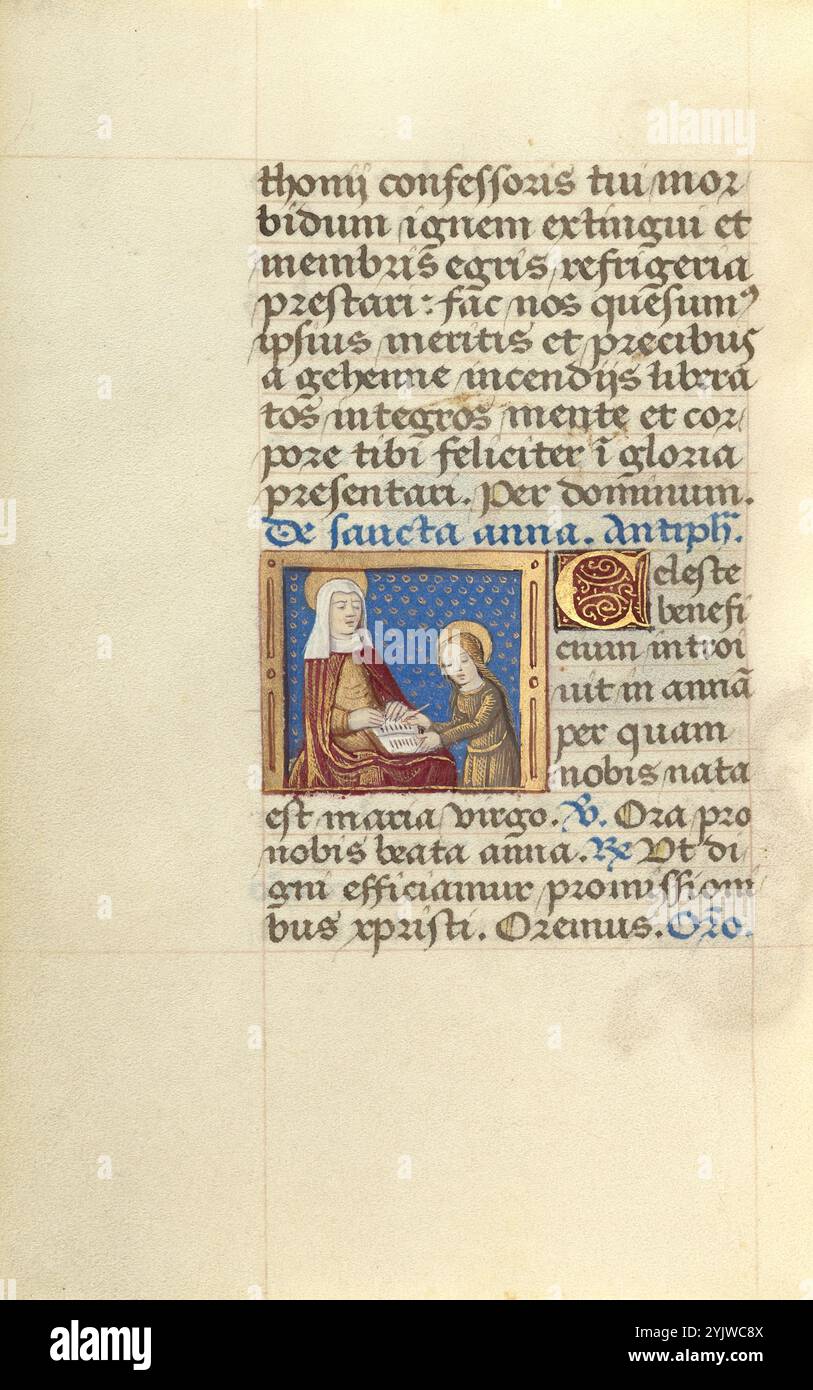 thonij confessoris tui mor
bidum ignem extingui et
membris egris refrigeria
prestari: fac nos quesumꝰ
ipsius meritis et precibus
a gehenne incendijs libera
tos integros mente et cor
pore tibi feliciter ī gloria
presentari. Per dominum.
De sancta anna. Antiph̄.
Celeste
benefi
cium introi
uit in annā
per quam
nobis nata
est maria virgo. V̄. Ora pro
nobis beata anna. R̄ Vt di
gni efficiamur promissioni
bus xpristi. Oremus. Orō.
alamy
alamy
Image ID: 2YJWC8X
www.alamy.com